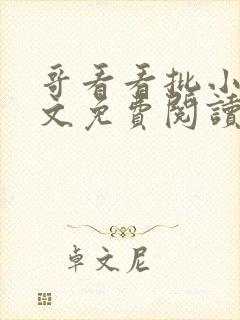 哥看看批小
文免費閱讀
卓文尼